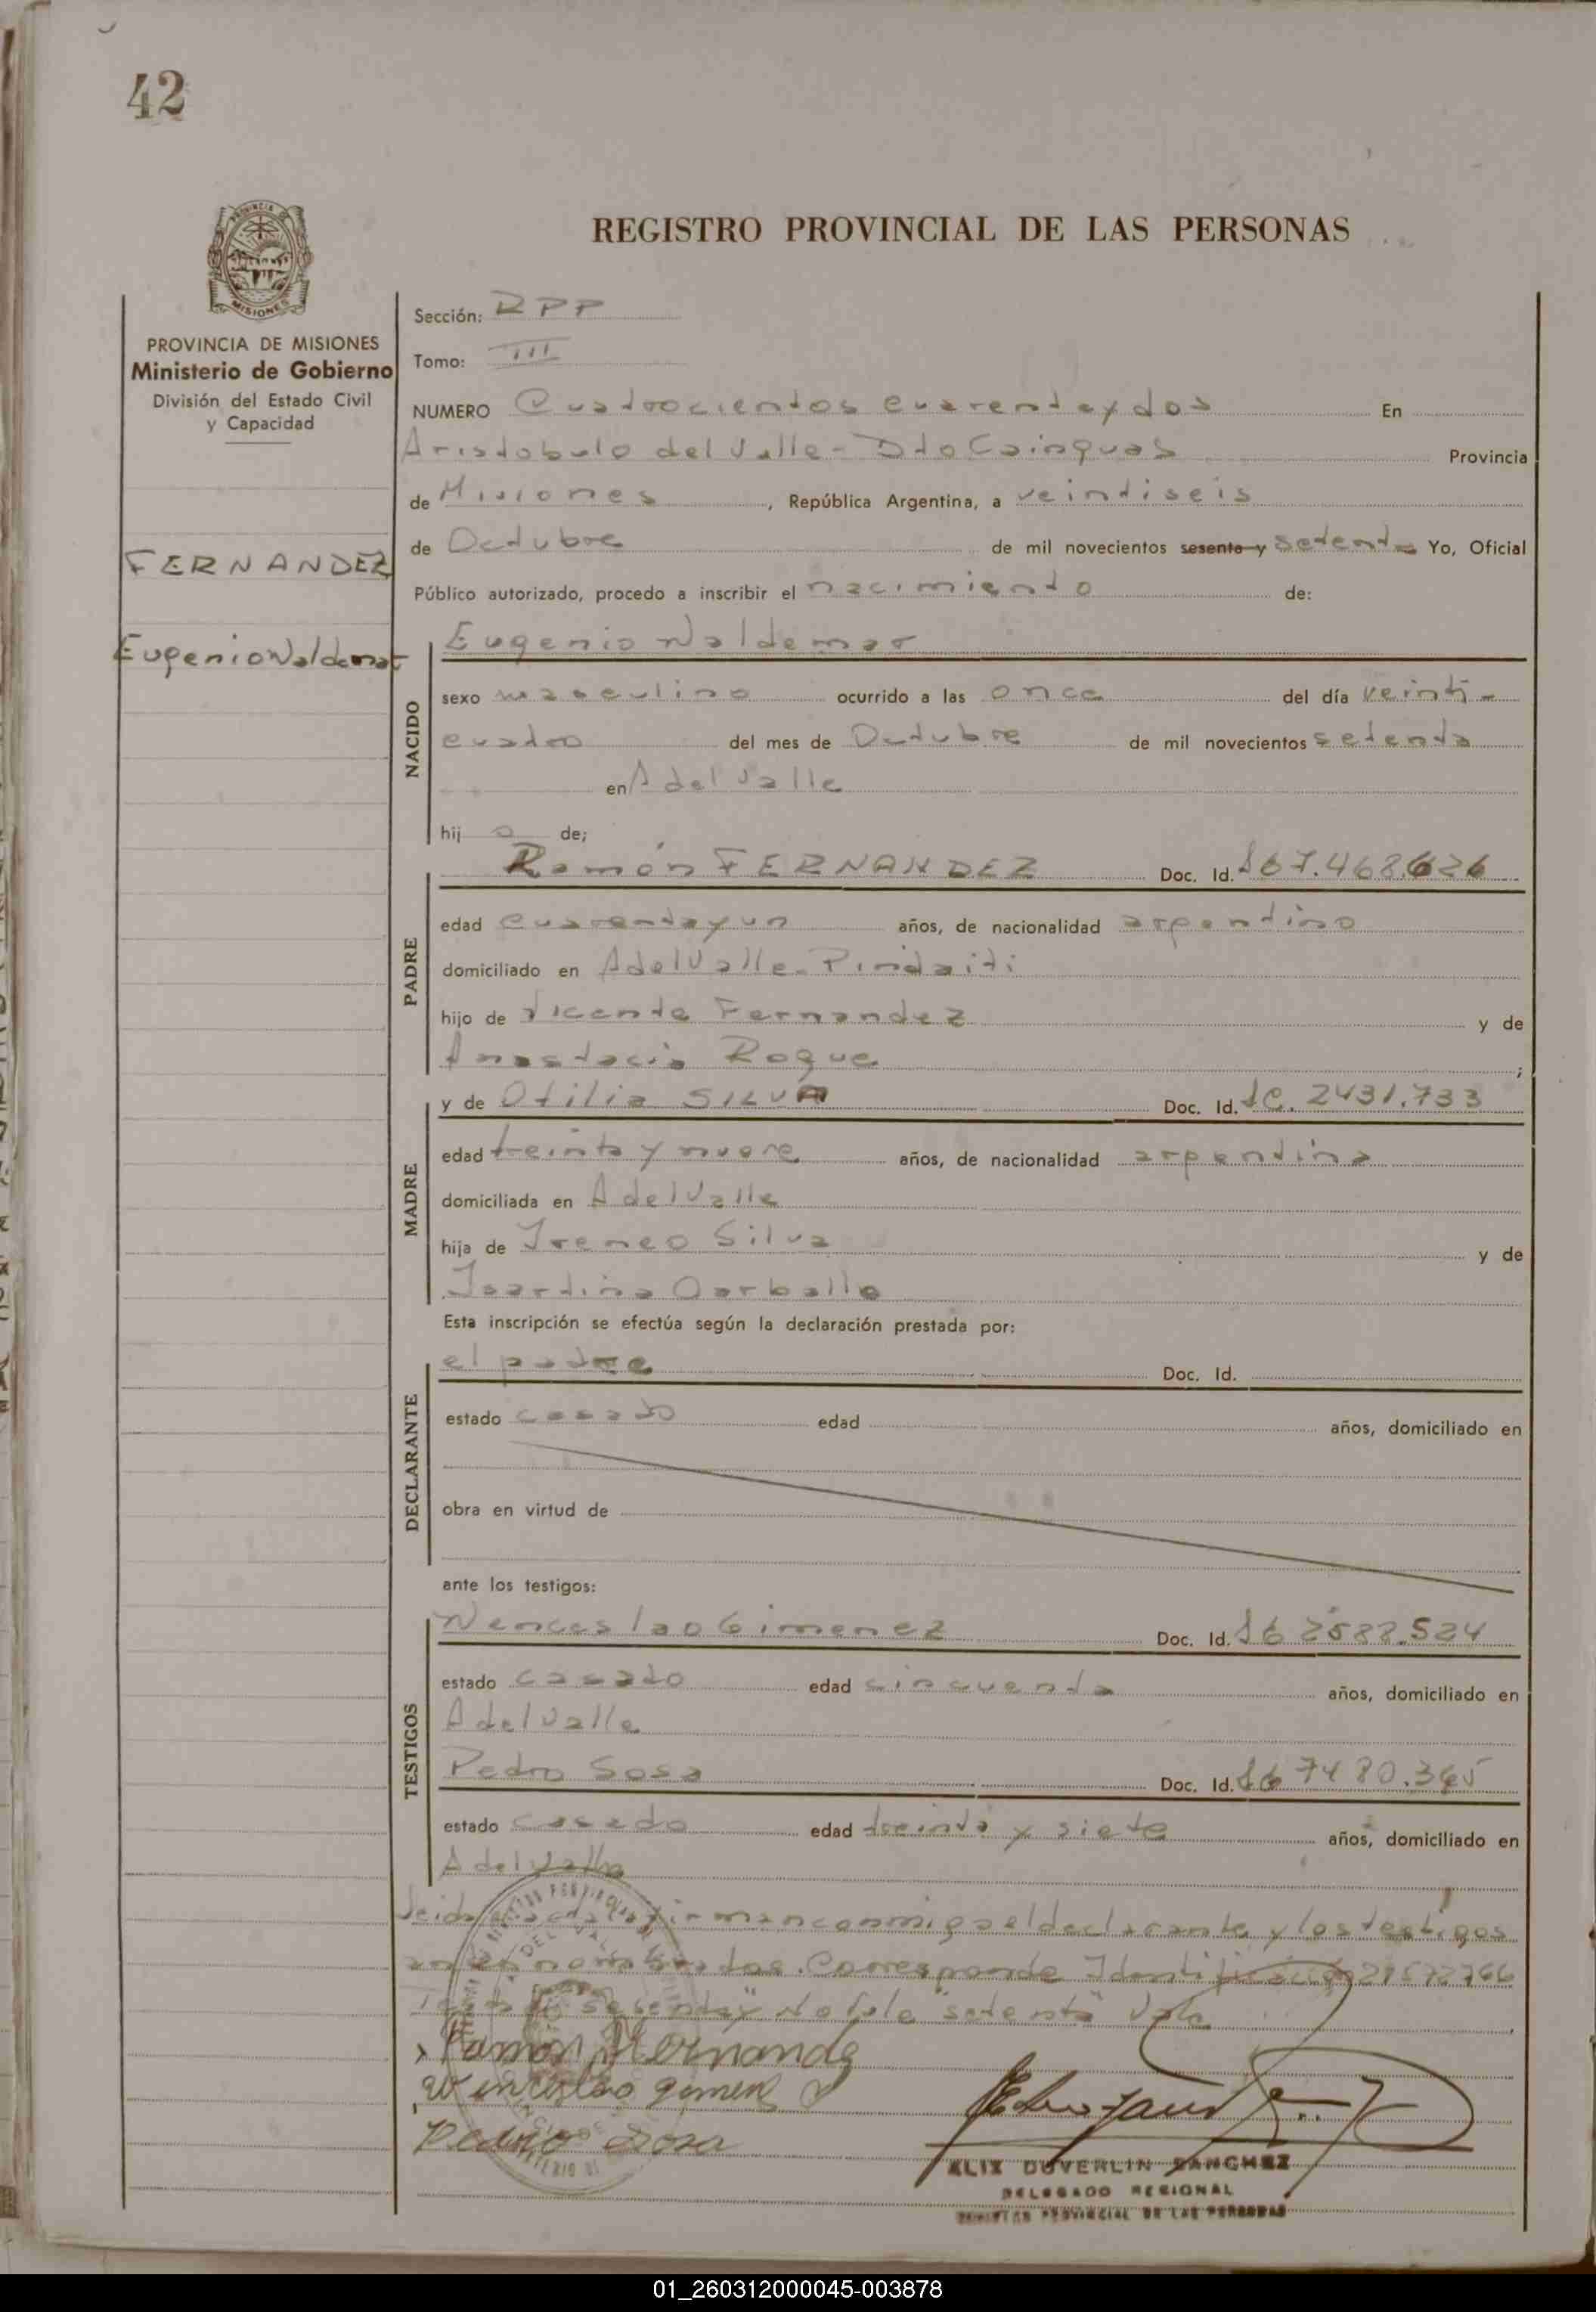 42
REGISTRO PROVINCIAL DE LAS PERSONAS
PROVINCIA DE MISIONES
Ministerio de Gobierno
División del Estado Civil
y Capacidad
FERNANDEZ
Eugenio Waldemar
Sección: RPP
Tomo: III
NUMERO Cuatrocientos cuarenta y dos En
Aristobulo del Valle - Dto Cainguas Provincia
de Misiones, República Argentina, a veintiseis
de Octubre de mil novecientos sesenta y setenta Yo, Oficial
Público autorizado, procedo a inscribir el nacimiento de:
NACIDO
Eugenio Waldemar
sexo masculino ocurrido a las once del día veinti-
cuatro del mes de Octubre de mil novecientos setenta
en A del Valle
hij o de;
PADRE
Ramón FERNANDEZ Doc. Id. 7.468.626
edad cuarenta y un años, de nacionalidad argentino
domiciliado en A del Valle - Pindaiti
hijo de Vicente Fernandez y de
Anastacia Roque;
MADRE
y de Otilia SILVA Doc. Id. 2431.733
edad treinta y nueve años, de nacionalidad argentina
domiciliada en A del Valle
hija de Ireneo Silva y de
Carballo
Esta inscripción se efectúa según la declaración prestada por:
DECLARANTE
el padre Doc. Id.
estado casado edad años, domiciliado en
obra en virtud de
ante los testigos:
TESTIGOS
Wenceslao Gimenez Doc. Id. 2588.524
estado casado edad cincuenta años, domiciliado en
A del Valle
Pedro Sosa Doc. Id. 7480.365
estado casado edad treinta y siete años, domiciliado en
A del Valle
Leida el acta la firman conmigo el declarante y los testigos
antes nombrados. Corresponde Identificación 21572766
"sesenta y" No Vale "setenta" Vale
Ramón Fernandez
Wenceslao Gimenez
Pedro Sosa
ELIX DUVERLIN SANCHEZ
DELEGADO REGIONAL
REGISTRO PROVINCIAL DE LAS PERSONAS
01_260312000045-003878